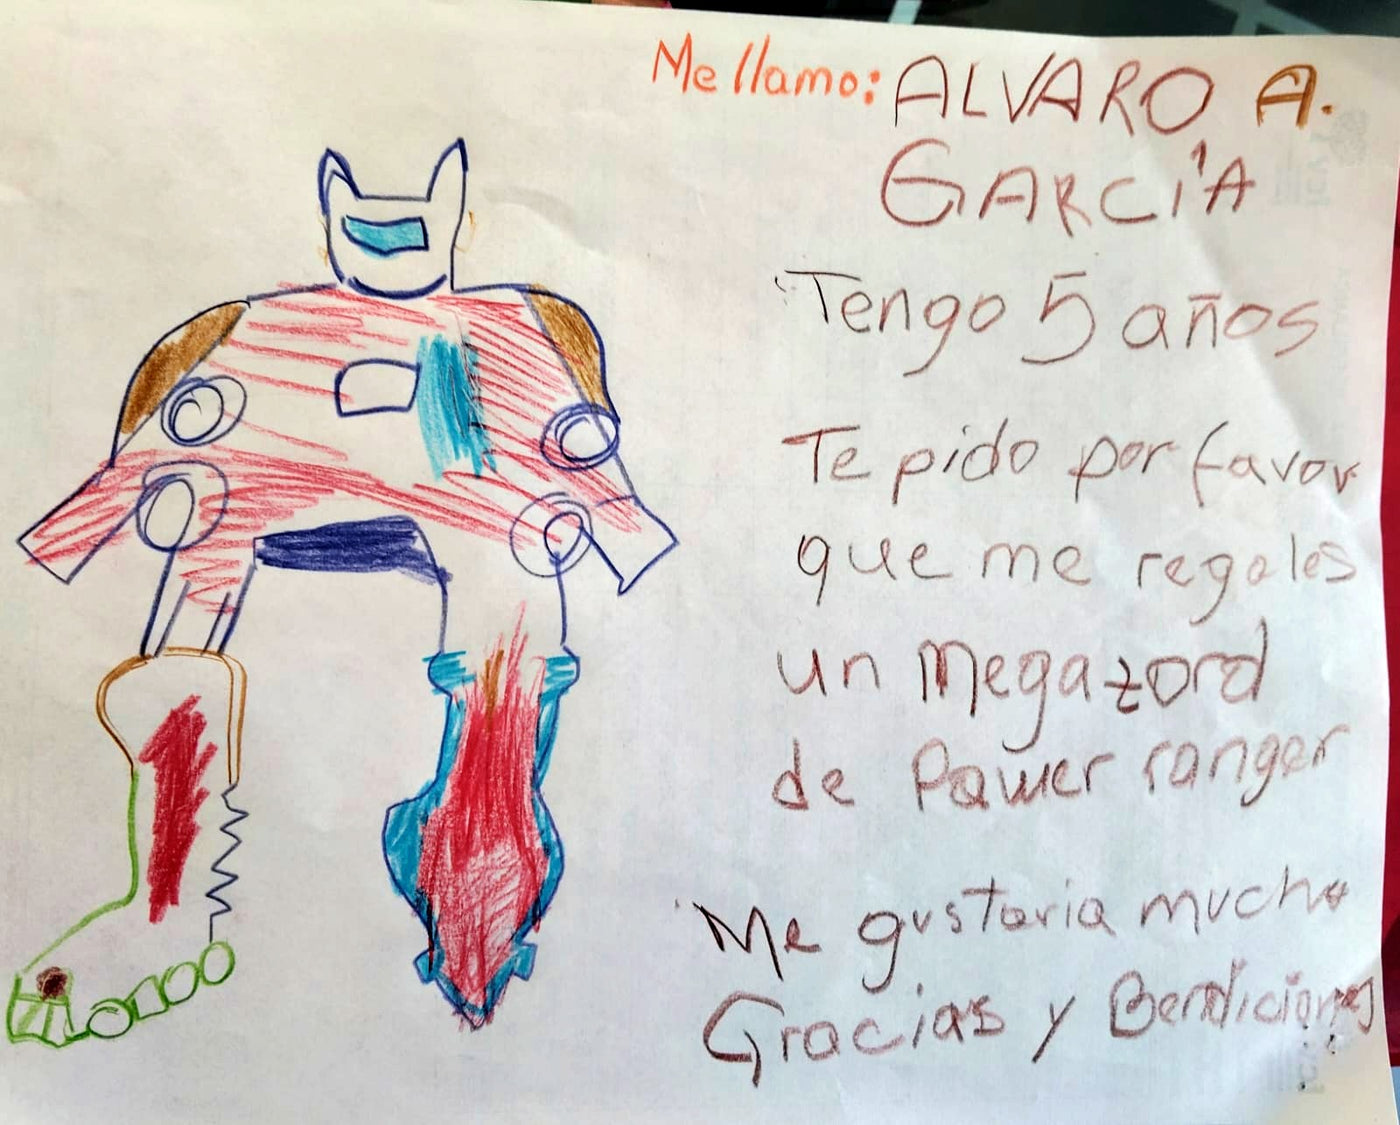 Me llamo: ALVARO A.
GARCÍA
Tengo 5 años
Te pido por favor
que me regales
un Megazord
de Pawer ranger
Me gustaria mucho
Gracias y Bendiciones